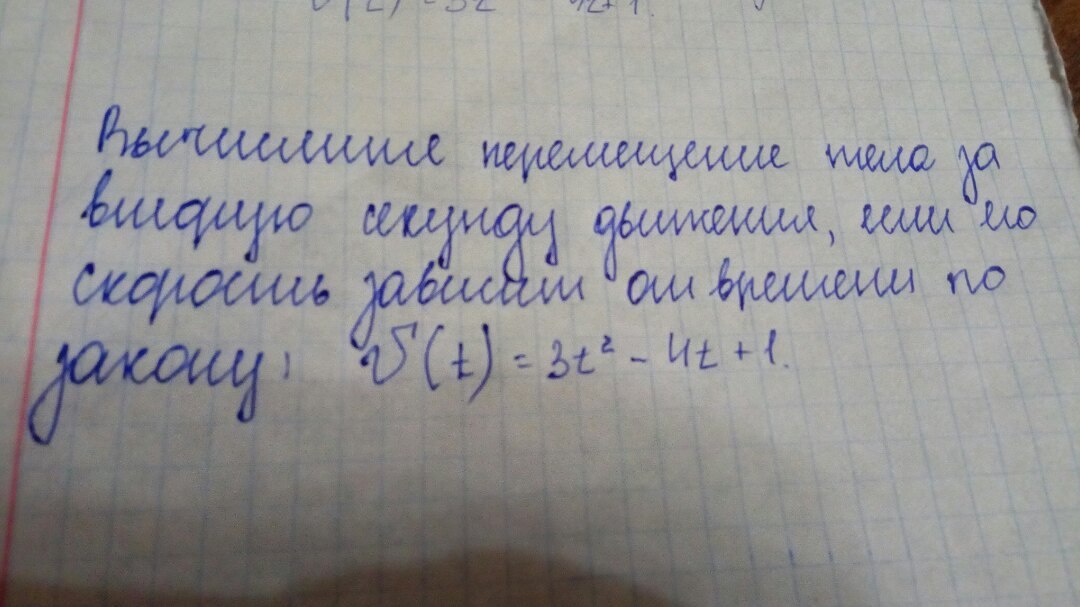 Вычислите перемещение тела за
вторую секунду движения, если его
скорость зависит от времени по
закону: v(t) = 3t² - 4t + 1.